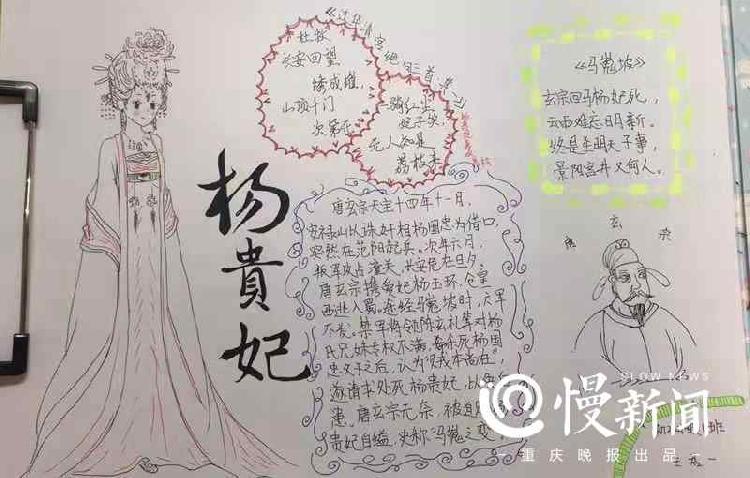 《过华清宫绝句三首·其一》
杜牧
长安回望
绣成堆,
山顶千门
次第开。
一骑红尘
妃子笑,
无人知是
荔枝来
《马嵬坡》
玄宗回马杨妃死,
云雨难忘日月新。
终是圣明天子事,
景阳宫井又何人。
杨貴妃
唐玄宗天宝十四年十一月,
安禄山以诛奸相杨国忠为借口,
突然在范阳起兵。次年六月,
叛军攻占潼关,长安危在旦夕。
唐玄宗携贵妃杨玉环,仓皇
西逃入蜀。途经马嵬坡时,六军
不发。禁军将领陈玄礼等对杨
氏兄妹专权不满,杀死杨国
忠父子之后,认为“贼本尚在”,
遂请求处死杨贵妃,以免后
患。唐玄宗无奈,被迫
贵妃自缢,史称“马嵬之变”
唐玄宗
SLOW NEWS
慢新闻
重庆晚报出品